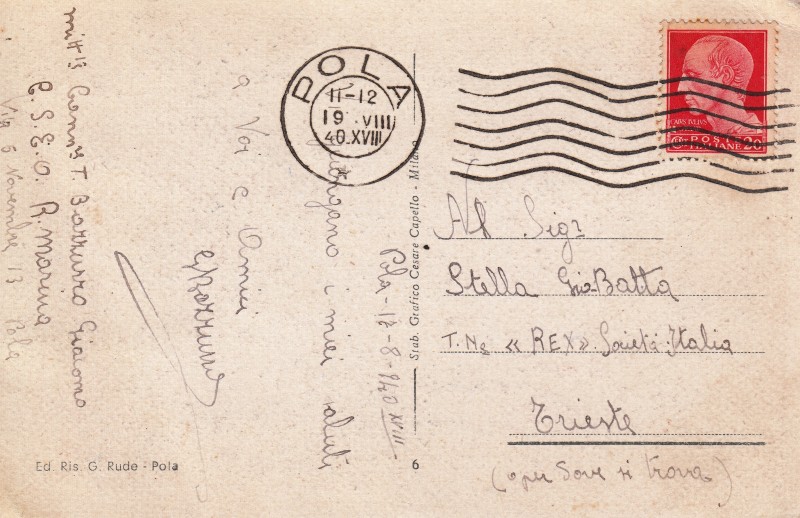 mitt
T. Bozzurro Giacomo
C.S.E.O. R. Marina
Via 5 Novembre 13 Pola
POLA
11-12
19 VIII
40.XVIII
Pola - 17-8-940 XVIII
Giungano i miei saluti
a Voi e Amici
GBozzurro
Ed. Ris. G. Rude - Pola
Stab. Grafico Cesare Capello - Milano
6
CAES IVLIVS
POSTE ITALIANE 20
Al Sigr
Stella Gio.Batta
T. Ne « REX » Società Italia
Trieste
(o per dove si trova)